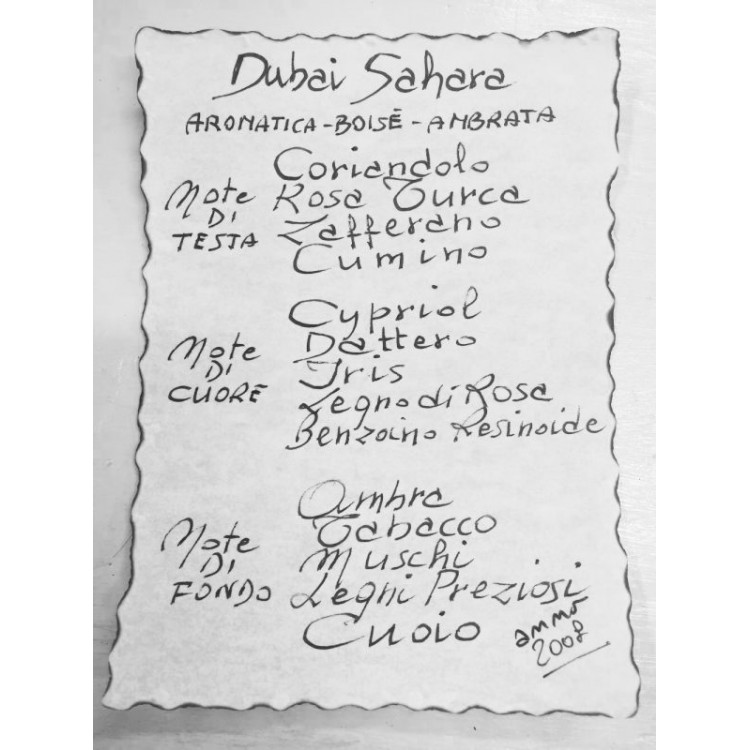 Dubai Sahara
AROMATICA - BOISÉ - AMBRATA
Note DI TESTA
Coriandolo
Rosa Turca
Zafferano
Cumino
Note DI CUORE
Cypriol
Dattero
Iris
Legno di Rosa
Benzoino Resinoide
Note DI FONDO
Ambra
Tabacco
Muschi
Legni Preziosi
Cuoio
anno 2008